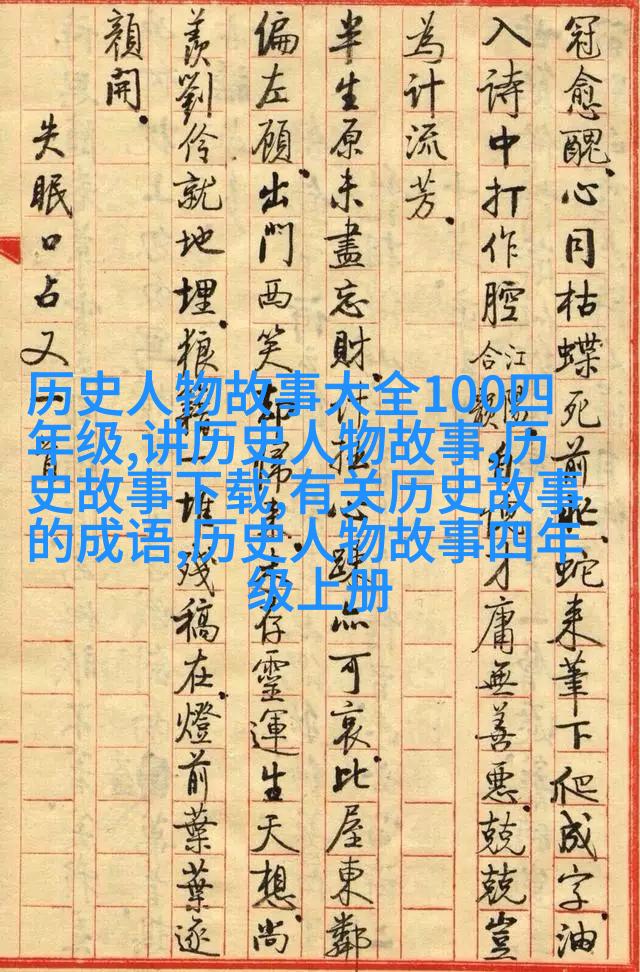 冠愈醜。心同枯蝶死前。蛇来筆下爬成字。油
入詩中打作腔江陽合韻才庸無善惡。兢兢豈
為計流芳。
半生原未盡忘財。計拙心可哀。比屋東鄰
偏左顧。出門西笑却歸存靈運生天想。尚
羨劉伶就地埋。狼籍一堆殘稿在。燈前葉葉逐
顏開。
失眠口占又一首
历史人物故事大全100四
年级,讲历史人物故事,历
史故事下载,有关历史故事
的成语,历史人物故事四年
级上册